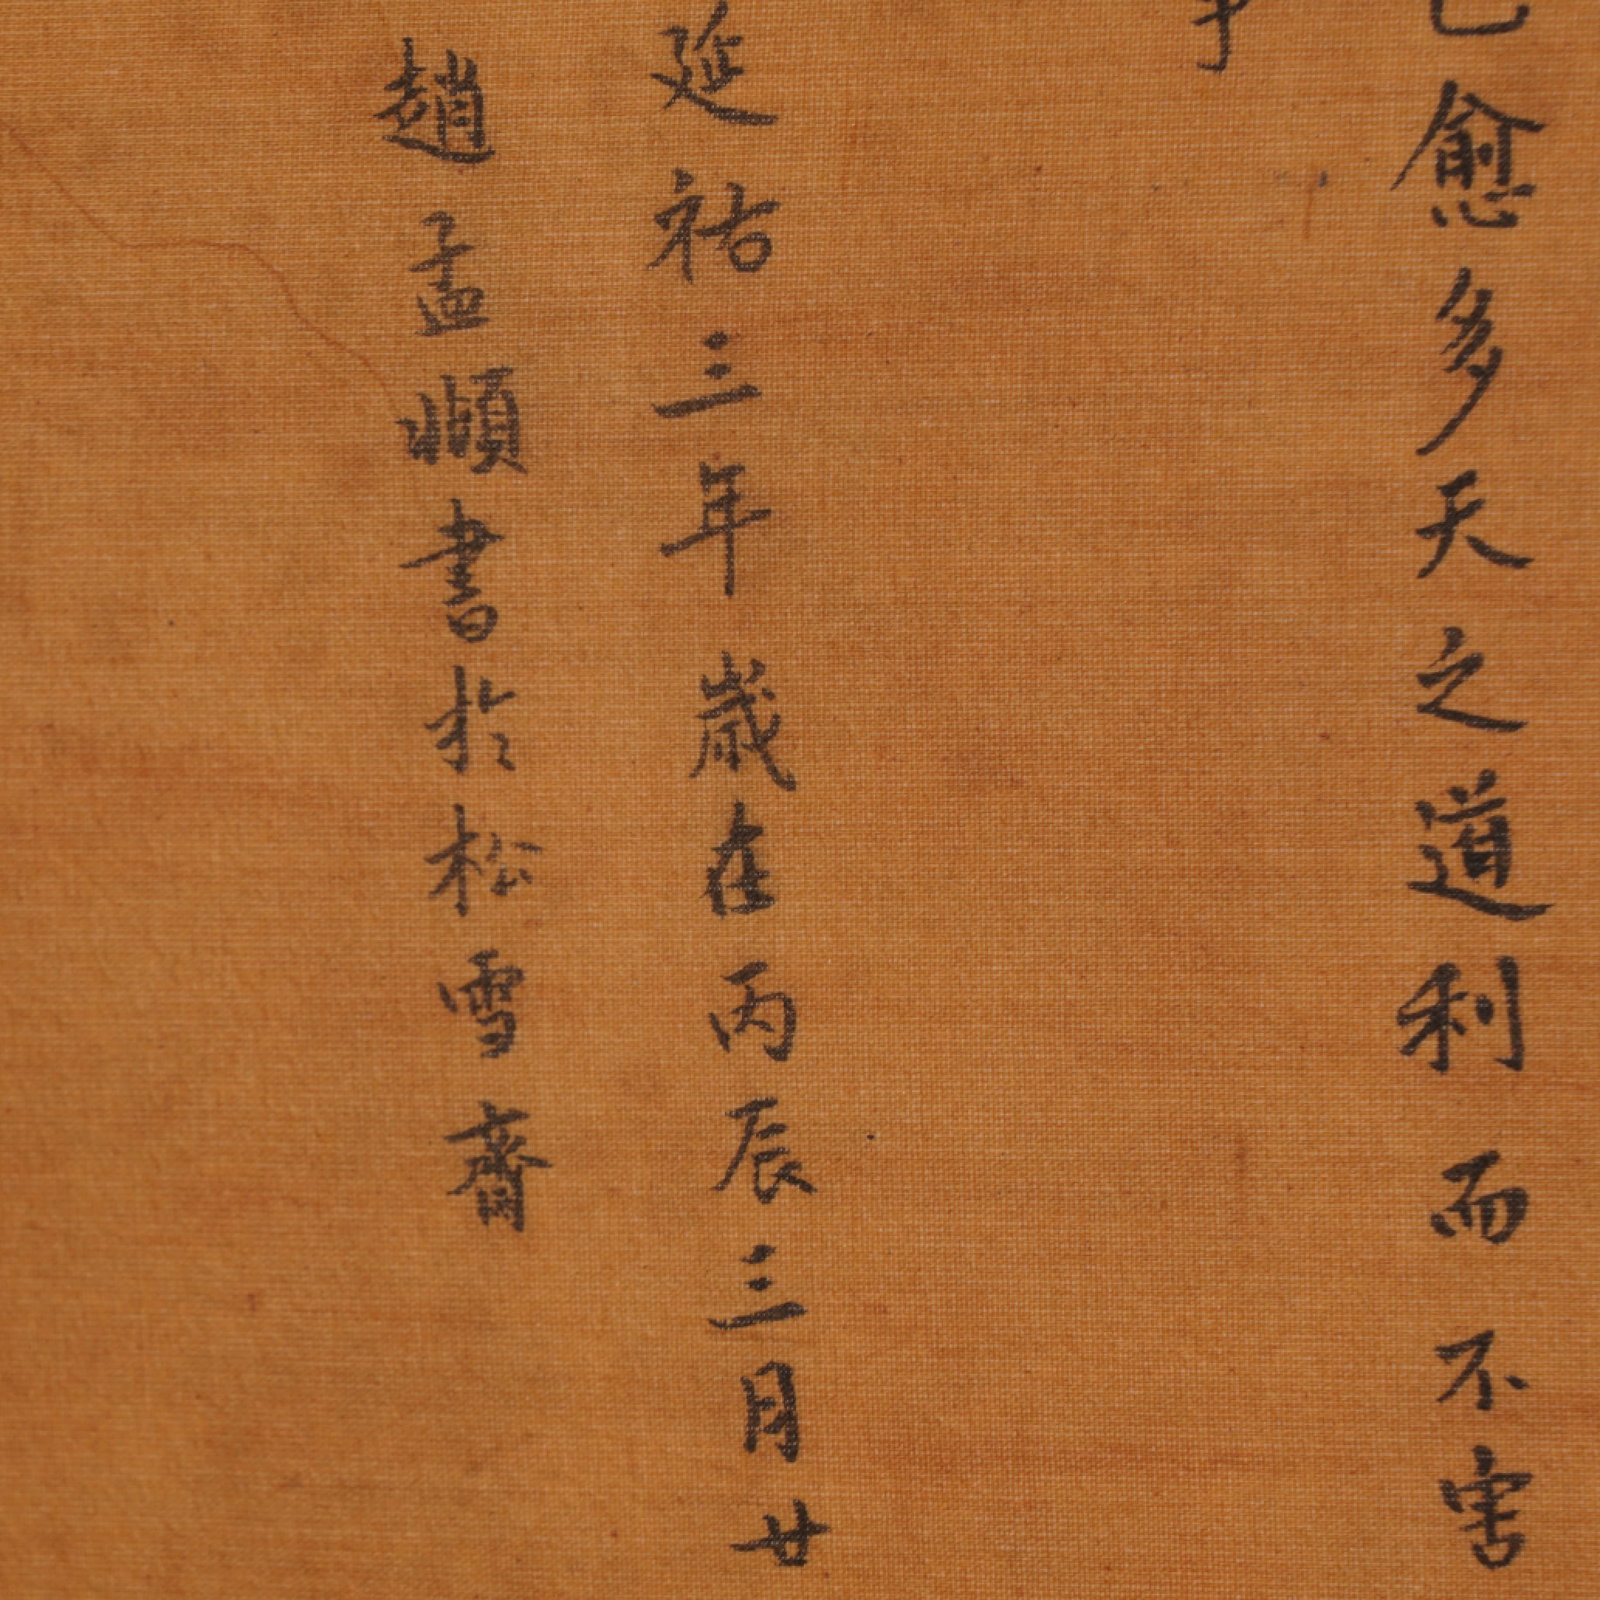 己愈多天之道利而不害
爭
延祐三年歲在丙辰三月廿
趙孟頫書於松雪齋